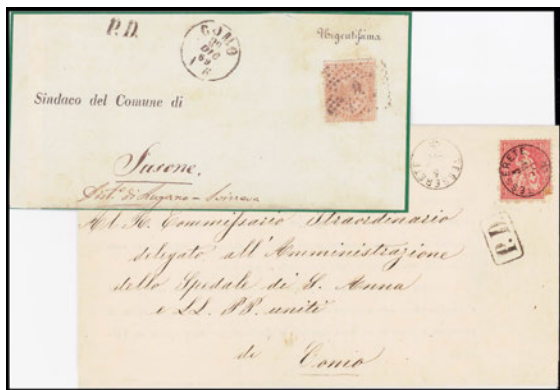 P.D.
COMO
DIC
69
Urgentissima
Sindaco del Comune di
Susone.
Dist.° di Lugano - Svizzera
TESSERETE
TESSERETE
P.D.
Al R. Commissario Straordinario
delegato all'Amministrazione
dello Spedale di S. Anna
e LL. PP. uniti
di Como